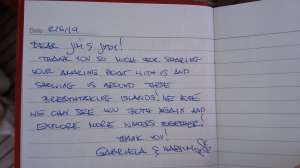 Date 8/6/19
DEAR JIM & JUDY!
THANK YOU SO MUCH FOR SHARING
YOUR AMAZING BOAT WITH US AND
SHOWING US AROUND THESE
BREATHTAKING ISLANDS! WE HOPE
WE CAN SEE YOU BOTH AGAIN AND
EXPLORE MORE WATERS TOGETHER!
THANK YOU!
GABRIELA &